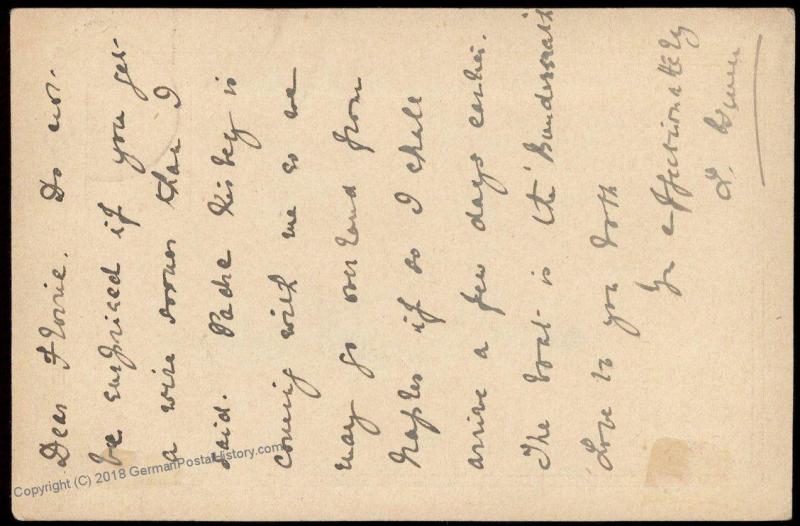 Dear Florrie. Do not
be surprised if you get
a wire sooner than I
said. Padre Kisbey is
coming with me so we
may go overland from
Naples if so I shall
arrive a few days earlier.
The boat is the "Bundesrath
Love to you both
Yr affectionately
Copyright (C) 2018 GermanPostalHistory.com